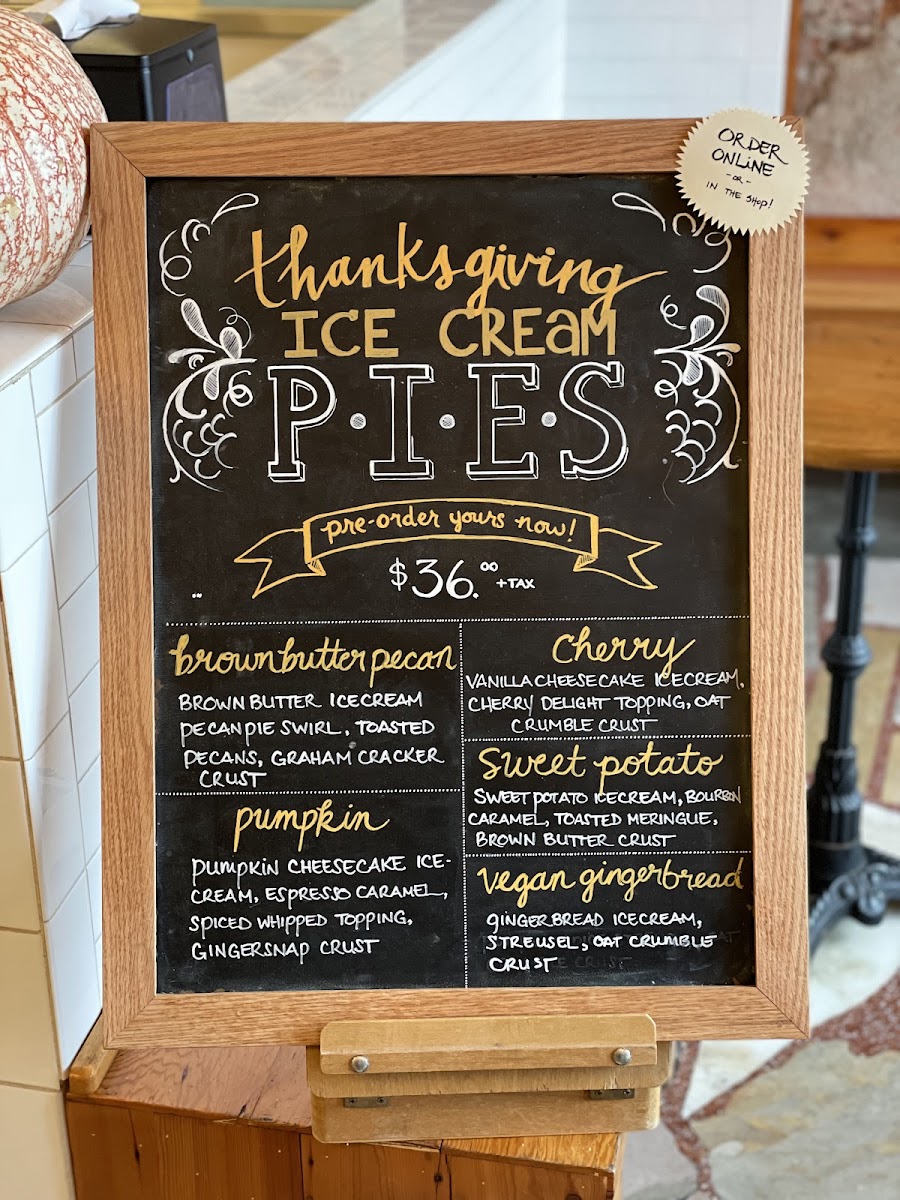 ORDER
ONLINE
-OR-
IN THE SHOP!
thanksgiving
ICE CREAM
P·I·E·S
pre-order yours now!
$36.00 +TAX
brown butter pecan
BROWN BUTTER ICECREAM
PECAN PIE SWIRL, TOASTED
PECANS, GRAHAM CRACKER
CRUST
pumpkin
PUMPKIN CHEESECAKE ICE-
CREAM, ESPRESSO CARAMEL,
SPICED WHIPPED TOPPING,
GINGERSNAP CRUST
Cherry
VANILLA CHEESECAKE ICECREAM,
CHERRY DELIGHT TOPPING, OAT
CRUMBLE CRUST
Sweet potato
SWEET POTATO ICECREAM, BOURBON
CARAMEL, TOASTED MERINGUE,
BROWN BUTTER CRUST
vegan gingerbread
GINGERBREAD ICECREAM,
STREUSEL, OAT CRUMBLE
CRUST